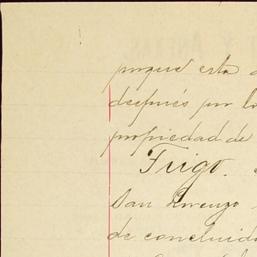 porque esta
después por lo
propiedad de
Trigo.
San Lorenzo
de concluid